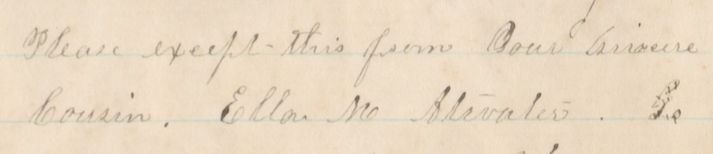 Please except this from Your Sincere
Cousin. Ella M Atwater.